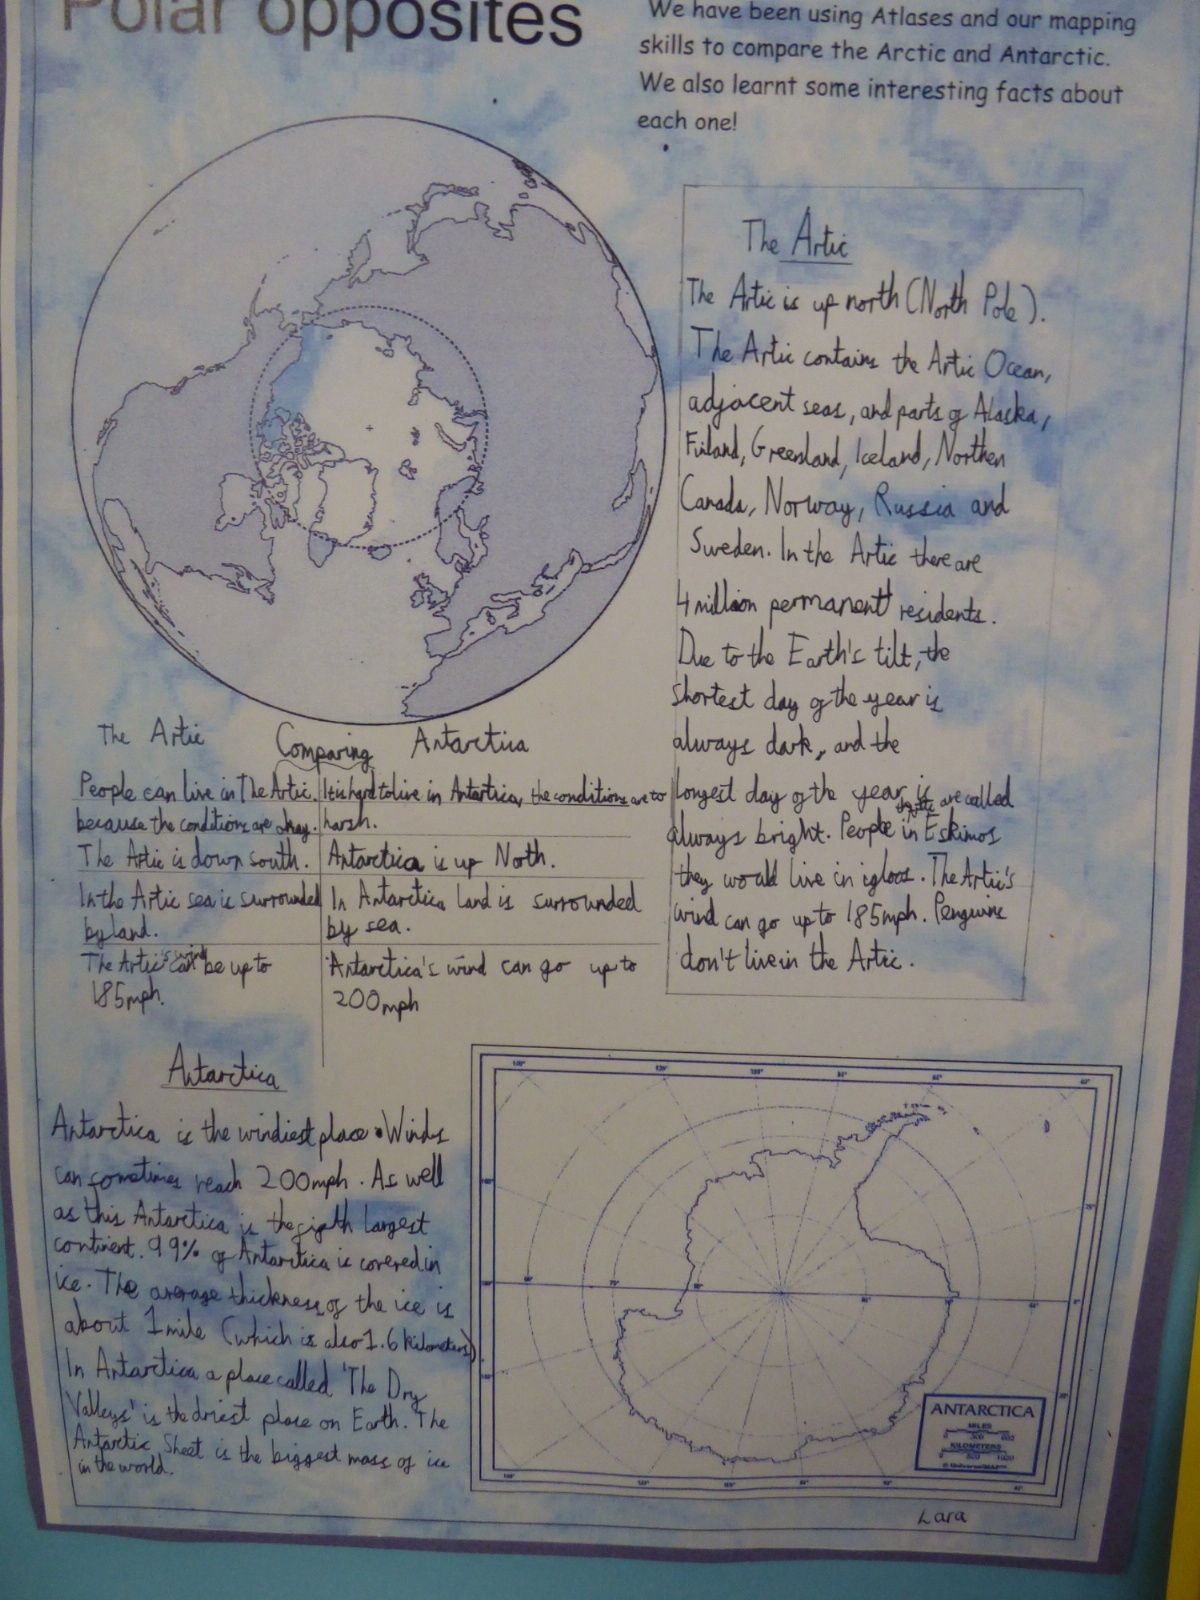 Polar opposites
We have been using Atlases and our mapping
skills to compare the Arctic and Antarctic.
We also learnt some interesting facts about
each one!
The Artic
The Artic is up north (North Pole).
The Artic contains the Artic Ocean,
adjacent seas, and parts of Alaska,
Finland, Greenland, Iceland, Northen
Canada, Norway, Russia and
Sweden. In the Artic there are
4 million permanent residents.
Due to the Earth's tilt, the
shortest day of the year is
always dark, and the
longest day of the year is
always bright. People in the Artic are called Eskimos
they would live in igloos. The Artic's
wind can go up to 185mph. Penguins
don't live in the Artic.
The Artic Comparing Antarctica
People can live in The Artic. It is hard to live in Antartica, the conditions are to
because the conditions are okay. harsh.
The Artic is down south. Antarctica is up North.
In the Artic sea is surrounded In Antarctica Land is surrounded
by land. by sea.
The Artic's wind can be up to Antarctica's wind can go up to
185mph. 200mph
Antarctica
Antarctica is the windiest place. Winds
can sometimes reach 200mph. As well
as this Antarctica is the fifth largest
continent. 99% of Antarctica is covered in
ice. The average thickness of the ice is
about 1 mile (which is also 1.6 kilometers)
In Antarctica a place called 'The Dry
Valleys' is the driest place on Earth. The
Antarctic Sheet is the biggest mass of ice
in the world.
ANTARCTICA
MILES
KILOMETERS
Lara